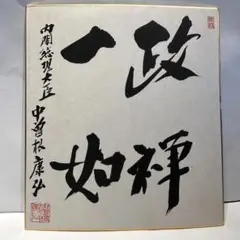 政禅
一如
内閣総理大臣
中曽根康弘